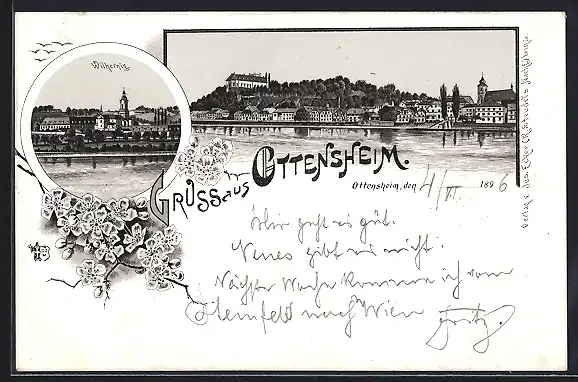 Wilhering
GRUSS aus OTTENSHEIM.
Ottensheim, den 4/VI. 1896
Mir geht es gut.
Neues gibt es nicht.
Nächste Woche komme ich vom
Steinfeld nach Wien
Fritz.
Verlag v. Jos.